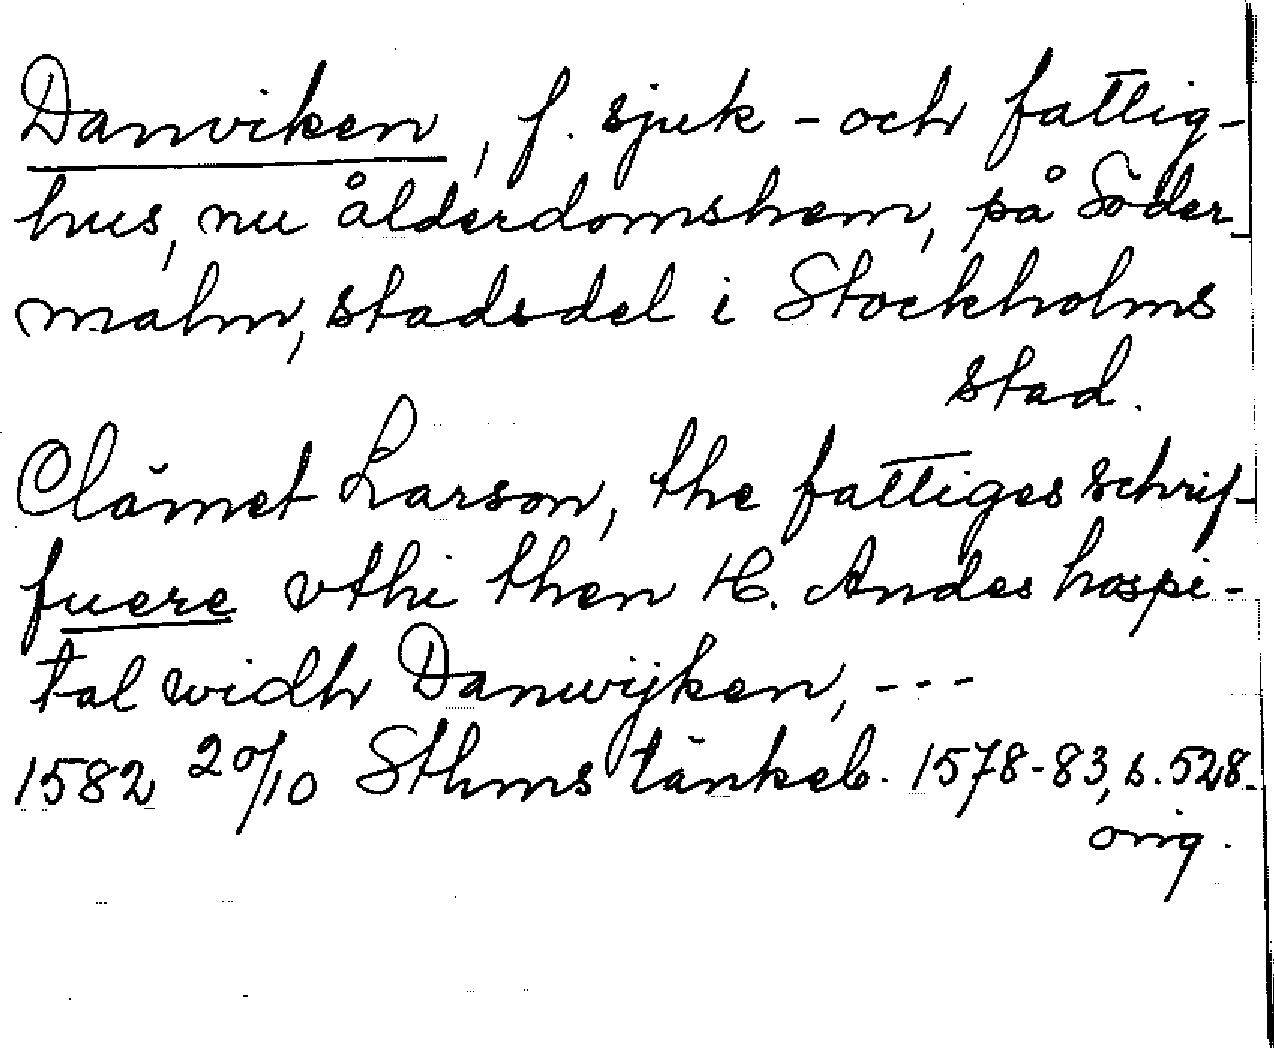 Danviken, f. sjuk- och fattig-
hus, nu ålderdomshem, på Söder-
malm, stadsdel i Stockholms
stad.
Clämet Larson, the fattiges schrif-
fuere vthi then H. Andes hospi-
tal widh Danwijken, ---
1582 20/10 Sthms tänkeb. 1578-83, s. 528.
orig.